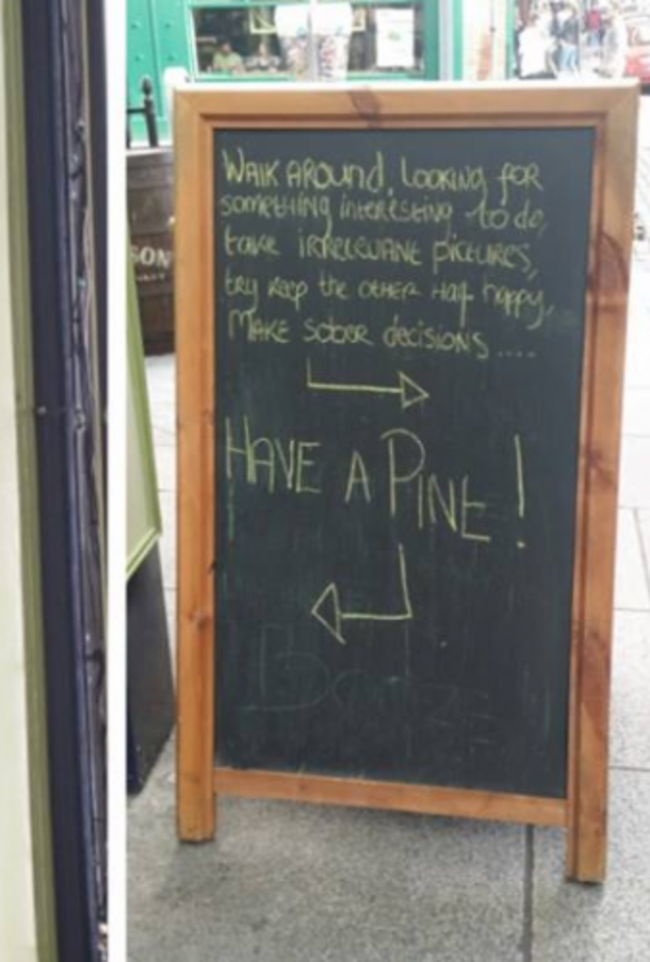 WALK AROUND, LOOKING FOR
something interesting to do,
take irrelevant pictures,
try keep the other Half happy,
MAKE sober decisions ....
HAVE A PINE!
SON